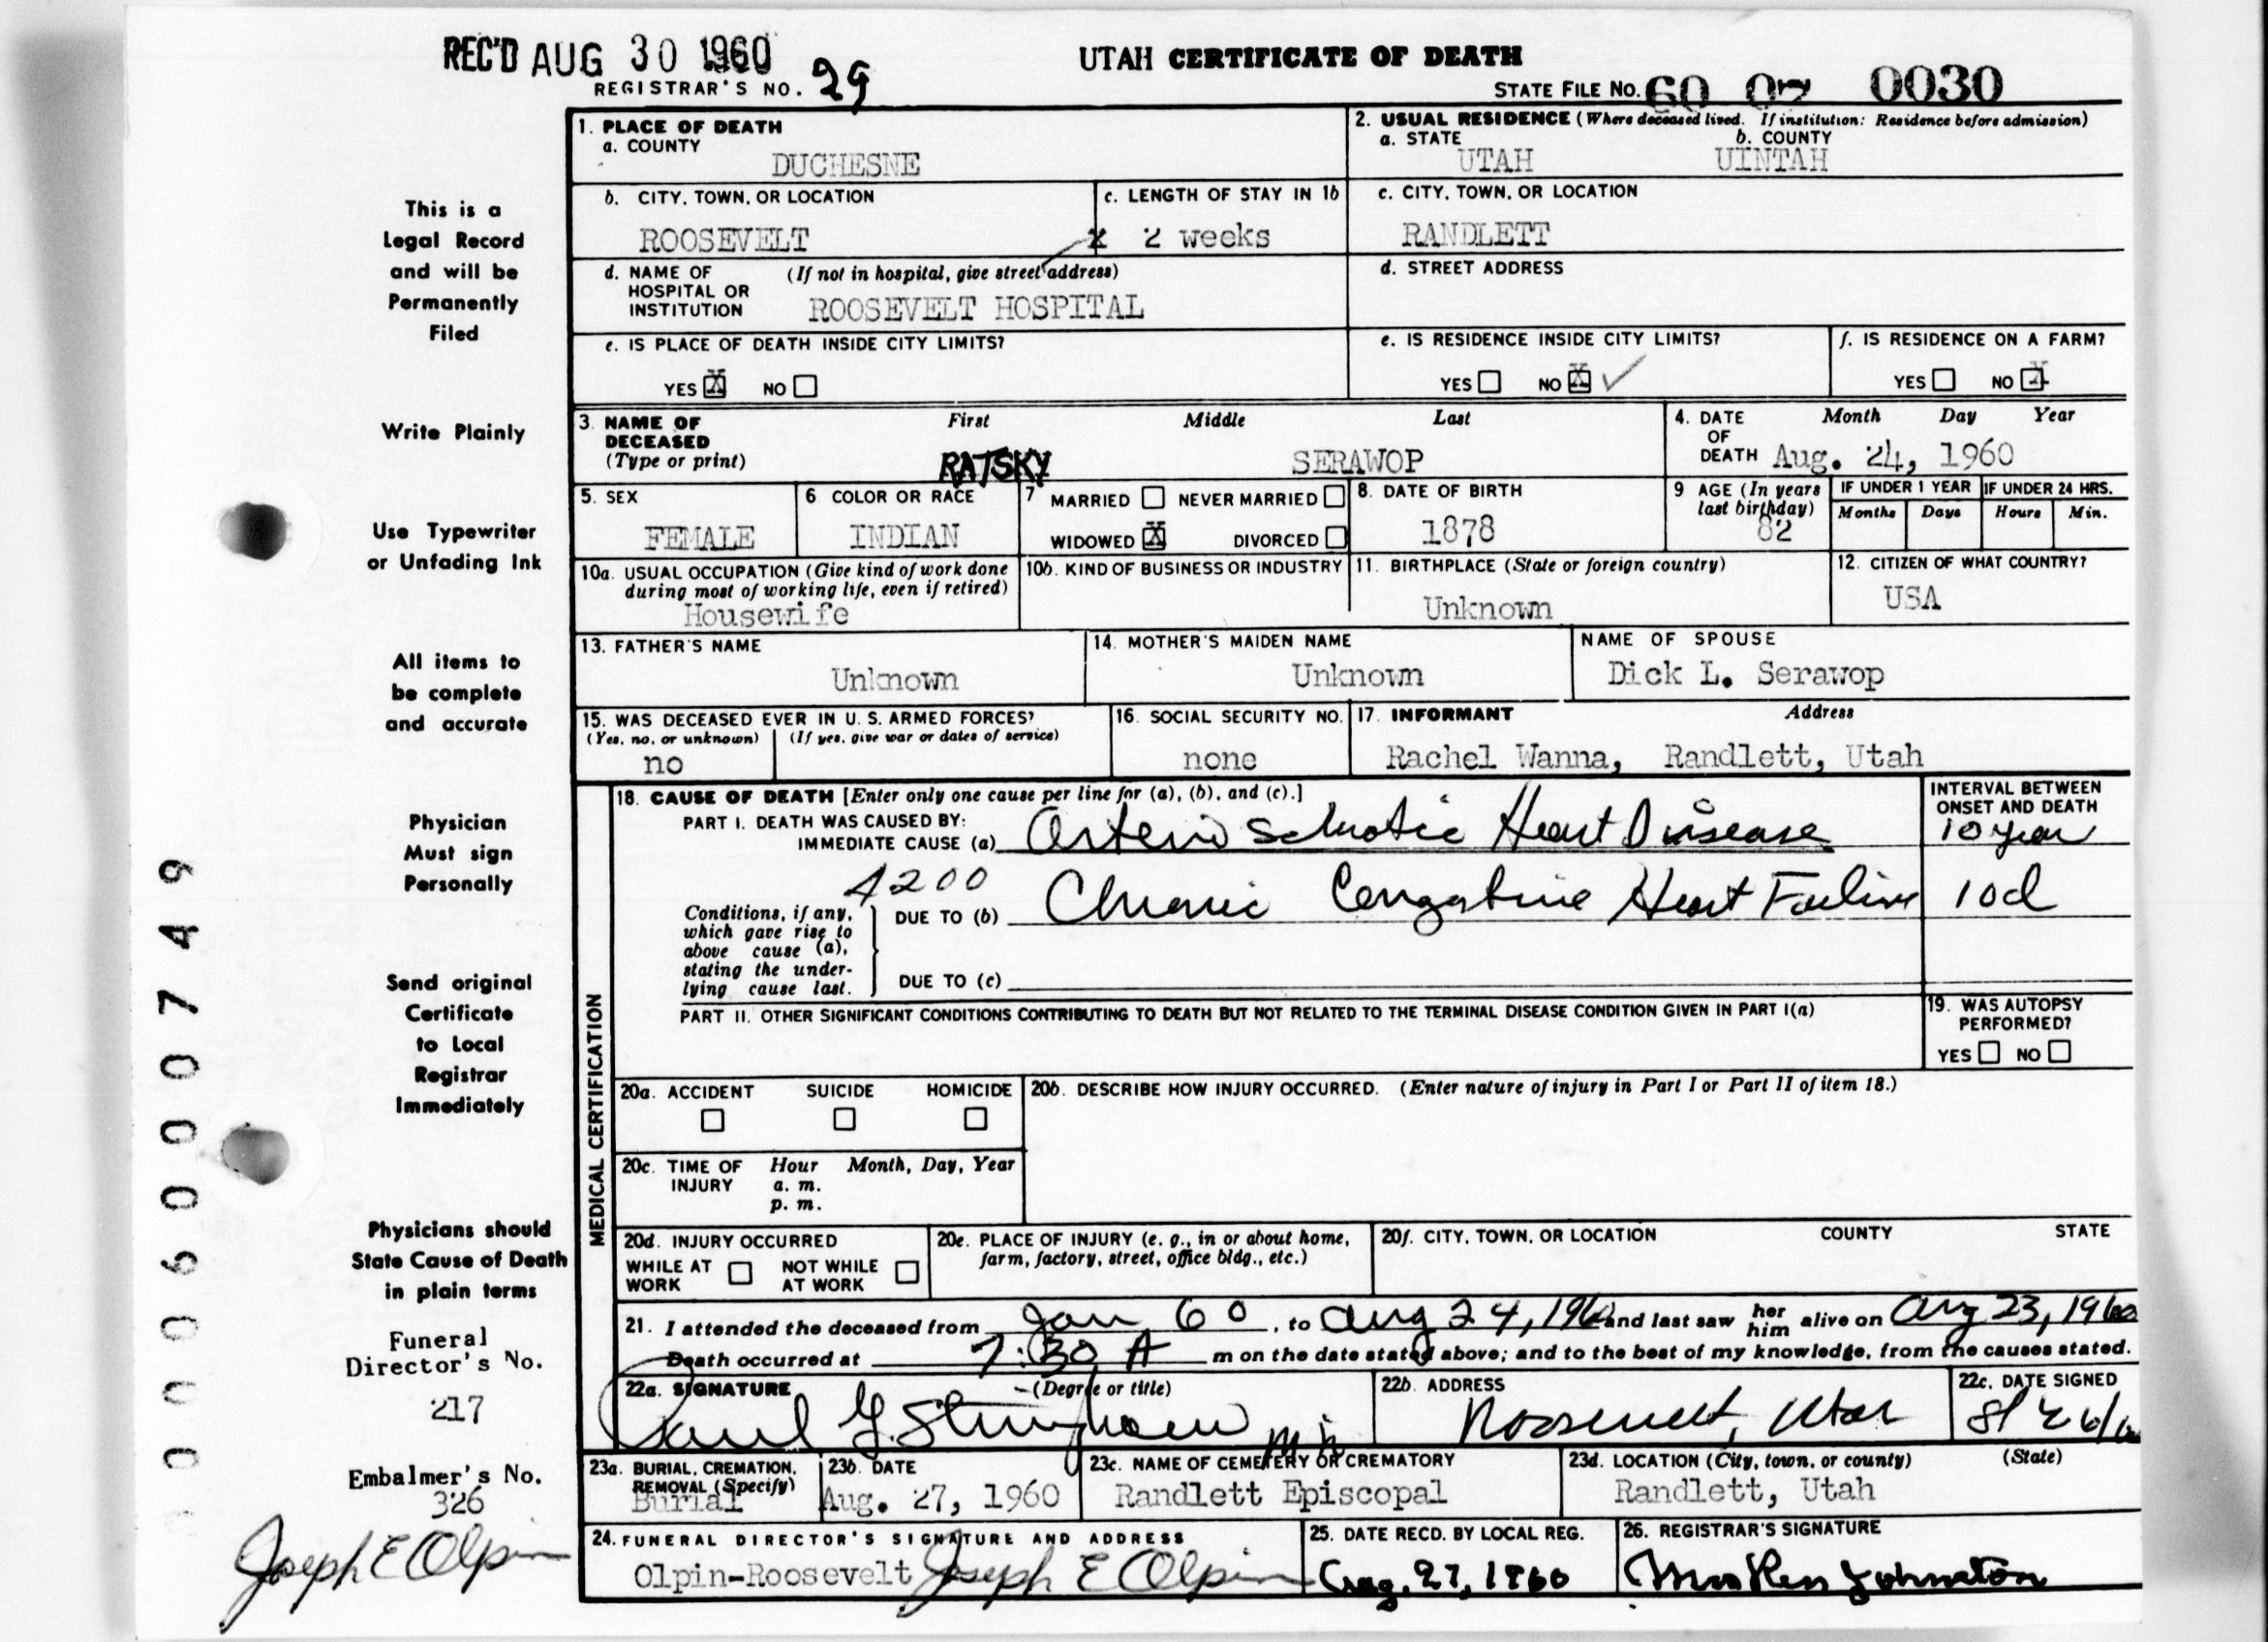 REC'D AUG 30 1960
UTAH CERTIFICATE OF DEATH
REGISTRAR'S NO. 29
STATE FILE NO. 60 07 0030
This is a
Legal Record
and will be
Permanently
Filed
Write Plainly
Use Typewriter
or Unfading Ink
All items to
be complete
and accurate
Physician
Must sign
Personally
Send original
Certificate
to Local
Registrar
Immediately
Physicians should
State Cause of Death
in plain terms
Funeral
Director's No.
217
Embalmer's No.
326
Joseph E Olpin
006000749
1. PLACE OF DEATH
a. COUNTY
DUCHESNE
2. USUAL RESIDENCE (Where deceased lived. If institution: Residence before admission)
a. STATE b. COUNTY
UTAH UINTAH
b. CITY, TOWN, OR LOCATION
ROOSEVELT
c. LENGTH OF STAY IN 1b
x 2 weeks
c. CITY, TOWN, OR LOCATION
RANDLETT
d. NAME OF (If not in hospital, give street address)
HOSPITAL OR
INSTITUTION ROOSEVELT HOSPITAL
d. STREET ADDRESS
e. IS PLACE OF DEATH INSIDE CITY LIMITS?
YES X NO
e. IS RESIDENCE INSIDE CITY LIMITS?
YES NO X ✓
f. IS RESIDENCE ON A FARM?
YES NO X
3. NAME OF First Middle Last
DECEASED
(Type or print) RATSKY SERAWOP
4. DATE Month Day Year
OF
DEATH Aug. 24, 1960
5. SEX
FEMALE
6 COLOR OR RACE
INDIAN
7 MARRIED NEVER MARRIED
WIDOWED X DIVORCED
8. DATE OF BIRTH
1878
9 AGE (In years
last birthday)
82
IF UNDER 1 YEAR
Months Days
IF UNDER 24 HRS.
Hours Min.
10a. USUAL OCCUPATION (Give kind of work done
during most of working life, even if retired)
Housewife
10b. KIND OF BUSINESS OR INDUSTRY
11. BIRTHPLACE (State or foreign country)
Unknown
12. CITIZEN OF WHAT COUNTRY?
USA
13. FATHER'S NAME
Unknown
14. MOTHER'S MAIDEN NAME
Unknown
NAME OF SPOUSE
Dick L. Serawop
15. WAS DECEASED EVER IN U. S. ARMED FORCES?
(Yes, no, or unknown) (If yes, give war or dates of service)
no
16. SOCIAL SECURITY NO.
none
17. INFORMANT Address
Rachel Wanna, Randlett, Utah
MEDICAL CERTIFICATION
18. CAUSE OF DEATH [Enter only one cause per line for (a), (b), and (c).]
INTERVAL BETWEEN
ONSET AND DEATH
PART I. DEATH WAS CAUSED BY:
IMMEDIATE CAUSE (a) Arterio Sclerotic Heart Disease 10 year
4200
Conditions, if any,
which gave rise to
above cause (a),
stating the under-
lying cause last.
DUE TO (b) Chronic Congestive Heart Failure 10d
DUE TO (c)
PART II. OTHER SIGNIFICANT CONDITIONS CONTRIBUTING TO DEATH BUT NOT RELATED TO THE TERMINAL DISEASE CONDITION GIVEN IN PART I(a)
19. WAS AUTOPSY
PERFORMED?
YES NO
20a. ACCIDENT SUICIDE HOMICIDE
20b. DESCRIBE HOW INJURY OCCURRED. (Enter nature of injury in Part I or Part II of item 18.)
20c. TIME OF Hour Month, Day, Year
INJURY a. m.
p. m.
20d. INJURY OCCURRED
WHILE AT NOT WHILE
WORK AT WORK
20e. PLACE OF INJURY (e. g., in or about home,
farm, factory, street, office bldg., etc.)
20f. CITY, TOWN, OR LOCATION COUNTY STATE
21. I attended the deceased from Jan 60, to Aug 24, 1960 and last saw her him alive on Aug 23, 1960
Death occurred at 7:30 A m on the date stated above; and to the best of my knowledge, from the causes stated.
22a. SIGNATURE (Degree or title)
Paul G. Stringham M D
22b. ADDRESS
Roosevelt, Utah
22c. DATE SIGNED
8/26/60
23a. BURIAL, CREMATION,
REMOVAL (Specify)
Burial
23b. DATE
Aug. 27, 1960
23c. NAME OF CEMETERY OR CREMATORY
Randlett Episcopal
23d. LOCATION (City, town, or county) (State)
Randlett, Utah
24. FUNERAL DIRECTOR'S SIGNATURE AND ADDRESS
Olpin-Roosevelt Joseph E Olpin
25. DATE RECD. BY LOCAL REG.
Aug. 27, 1960
26. REGISTRAR'S SIGNATURE
Johnston